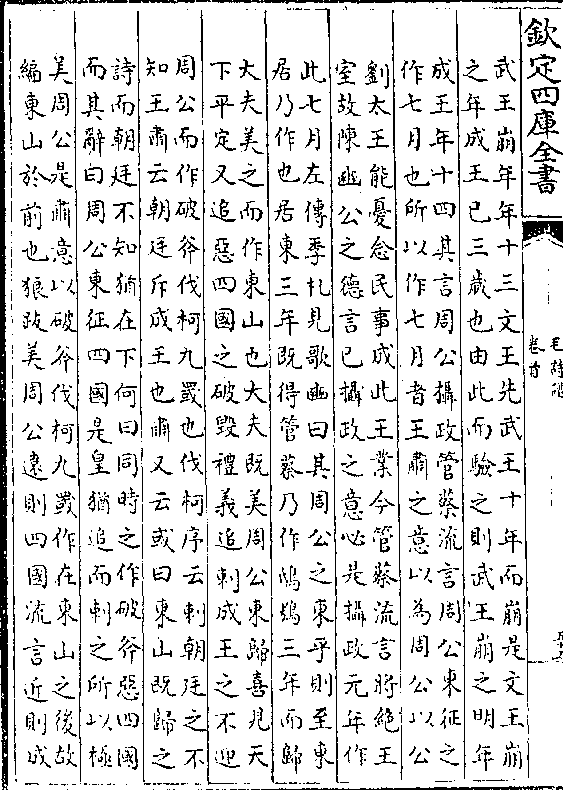 欽定四庫全書
毛詩注疏
卷首
武王崩年年十三文王先武王十年而崩是文王崩
之年成王已三歲也由此而驗之則武王崩之明年
成王年十四其言周公攝政管蔡流言周公東征之
作七月也所以作七月者王肅之意以為周公以公
劉太王能憂念民事成此王業今管蔡流言將絕王
室故陳豳公之德言已攝政之意必是攝政元年作
此七月左傳季札見歌豳曰其周公之東乎則至東
居乃作也居東三年既得管蔡乃作鴟鴞三年而歸
大夫美之而作東山也大夫既美周公東歸喜見天
下平定又追惡四國之破毀禮義追刺成王之不迎
周公而作破斧伐柯九罭也伐柯序云刺朝廷之不
知王肅云朝廷斥成王也肅又云或曰東山既歸之
詩而朝廷不知猶在下何曰同時之作破斧惡四國
而其辭曰周公東征四國是皇猶追而刺之所以極
美周公是肅意以破斧伐柯九罭作在東山之後故
編東山於前也狼跋美周公遠則四國流言近則成